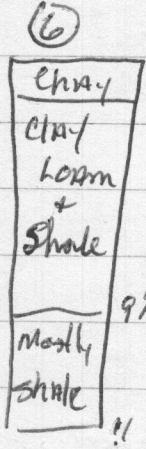 6
Clay
Loam
+
Shale
9'
Mostly
Shale